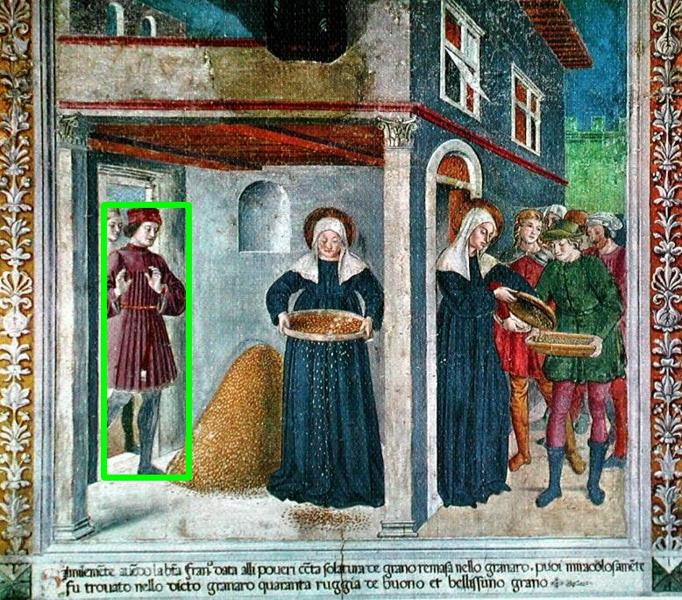 Similemēte avēdo la bta Franᶜ data alli poveri cēta solatura de grano remasa nello granaro · puoi miracolosamēte
fu trovato nello dicto granaro quaranta ruggia de buono et bellissimo grano